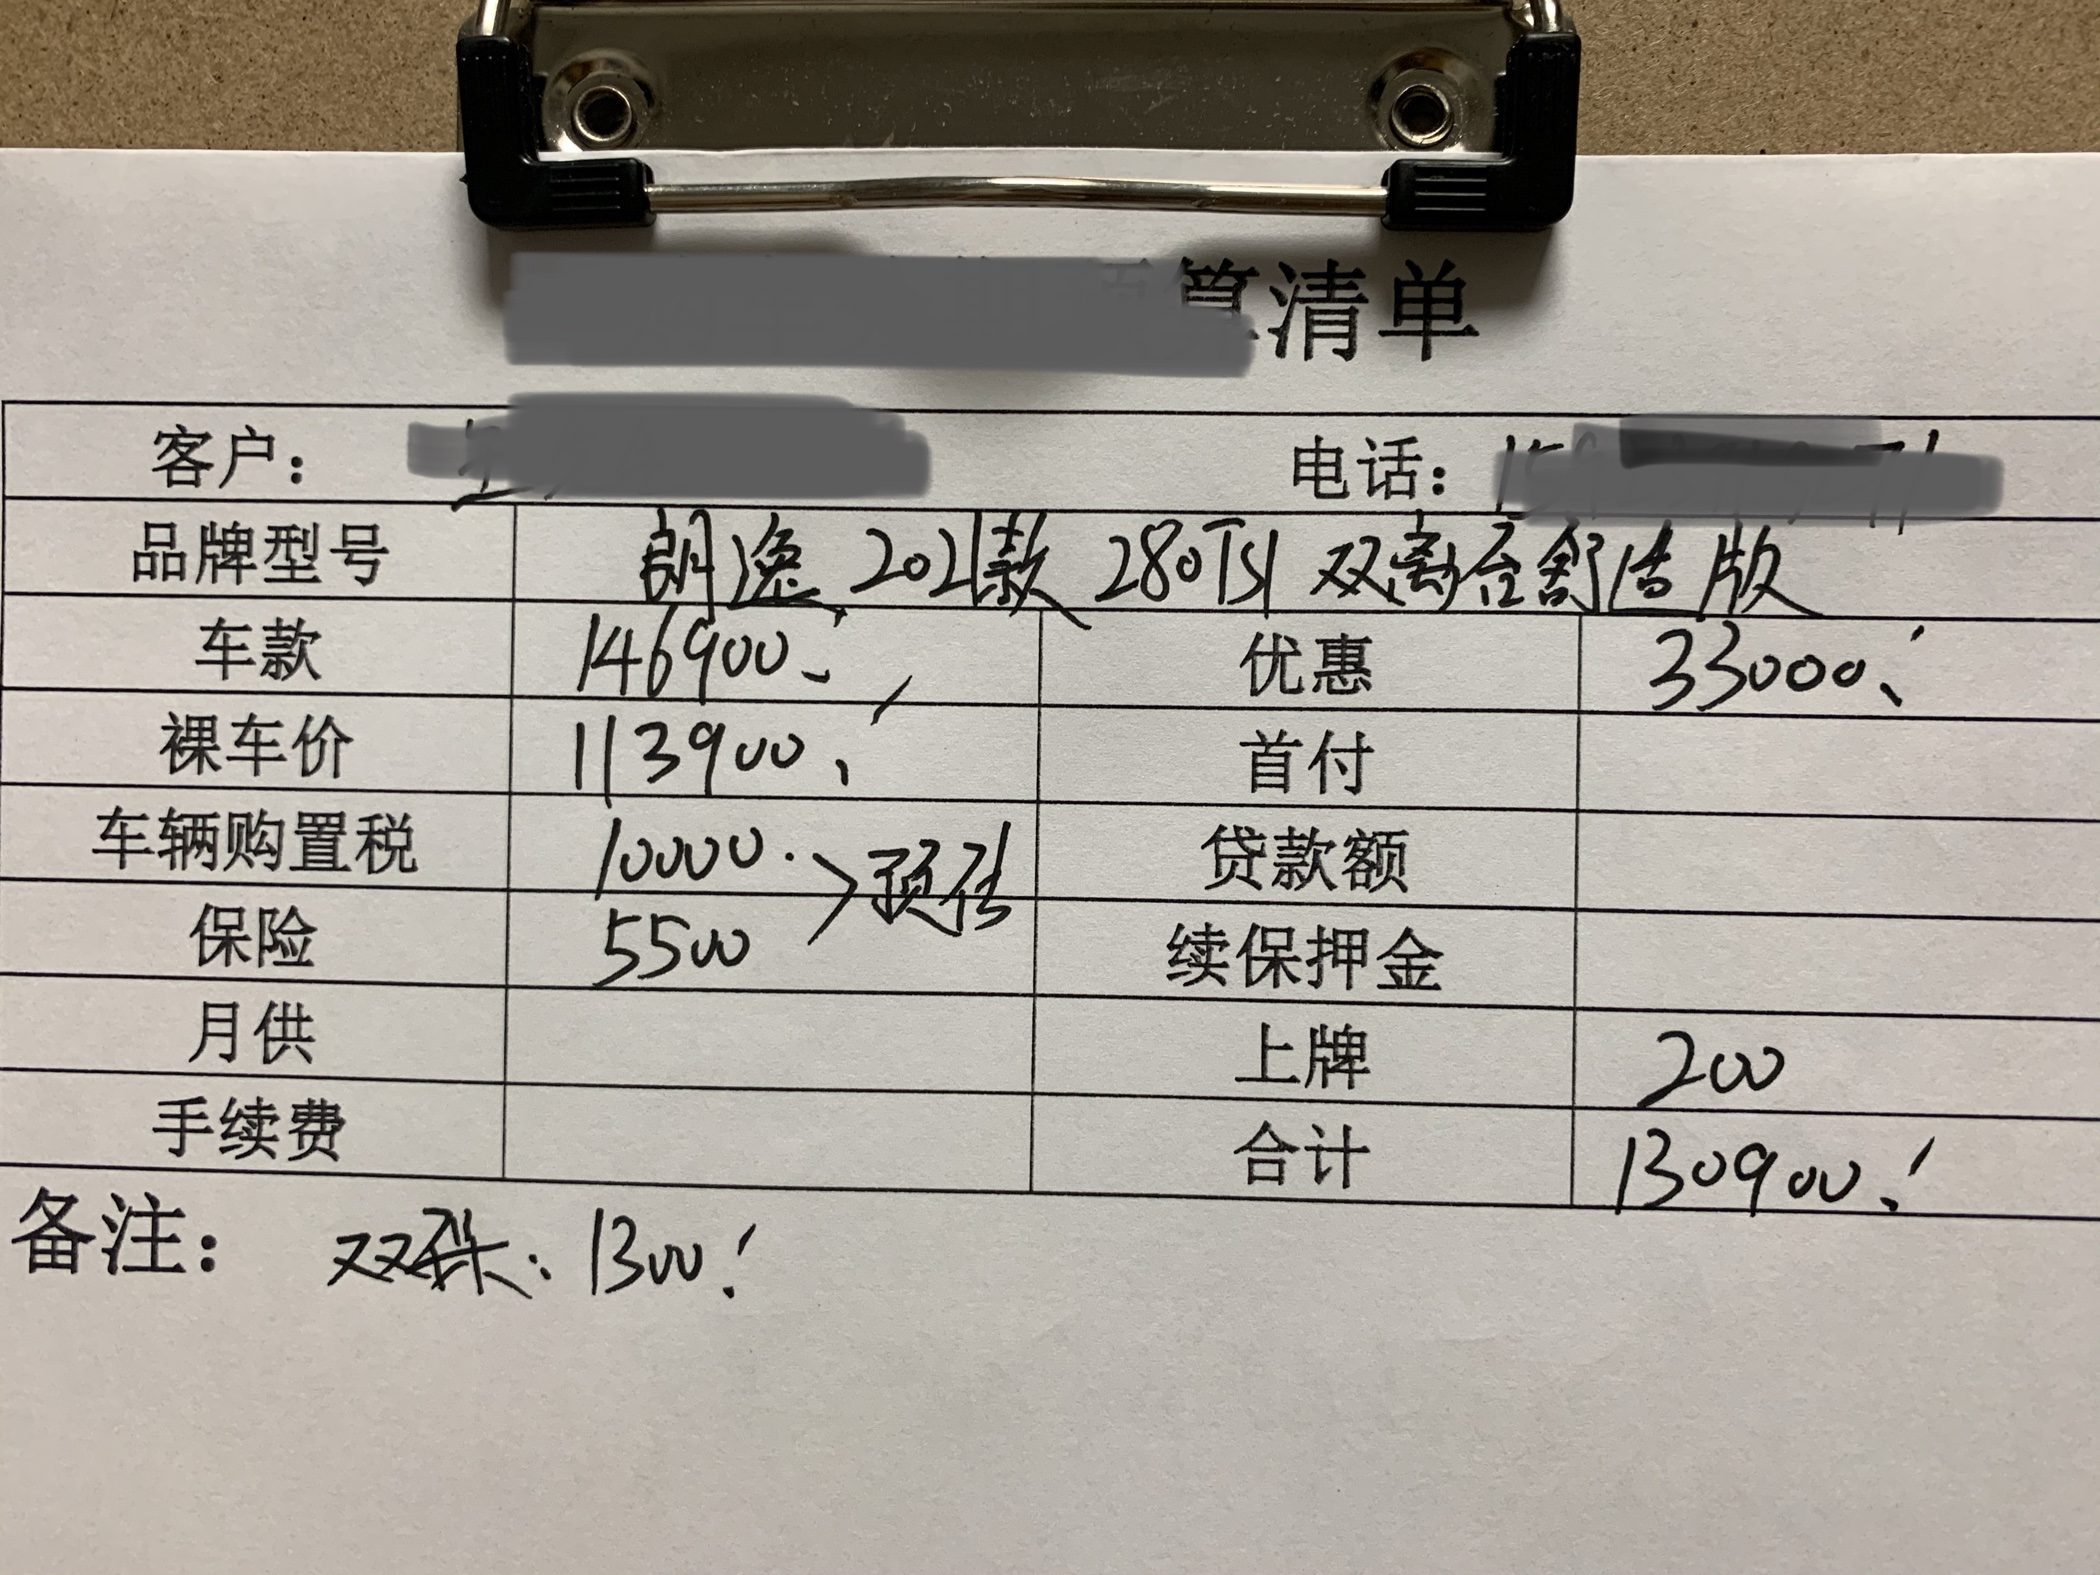 算清单
客户： 电话：
品牌型号 朗逸 2021款 280TSI 双离合舒适版
车款 146900 优惠 33000
裸车价 113900 首付
车辆购置税 10000 预估 贷款额
保险 5500 续保押金
月供 上牌 200
手续费 合计 130900
备注： 双保：1300